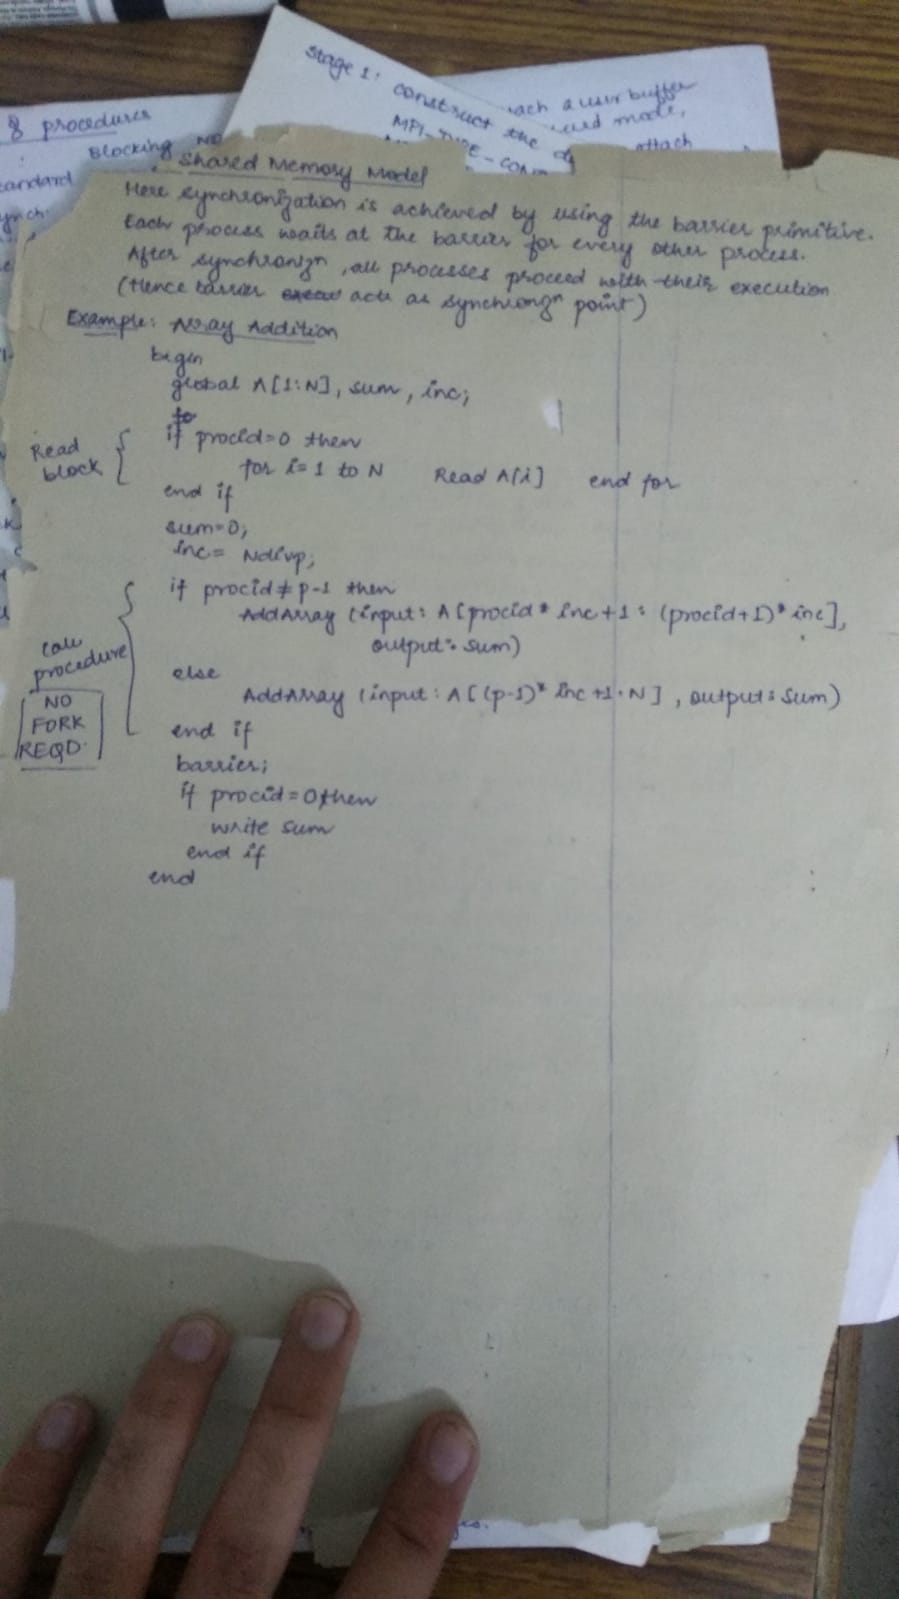 Stage 1: construct the
MPI_TYPE_CON
ach a user buffer
mode,
attach
& procedures
Blocking NO
tandard
ynch
Shared Memory Model
Here synchronization is achieved by using the barrier primitive.
Each process waits at the barrier for every other process.
After synchronizn, all processes proceed with their execution
(Hence barrier acts as synchrongn point)
Example: Array Addition
begin
global A[1:N], sum, inc;
if procid=0 then
Read block
for i=1 to N Read A[i] end for
end if
sum=0;
inc= Ndivp;
if procid≠p-1 then
AddArray (input: A[procid * inc+1: (procid+1)* inc],
output: sum)
call procedure
else
AddArray (input: A[(p-1)* inc+1:N], output: sum)
NO
FORK
REQD.
end if
barrier;
if procid=0 then
write sum
end if
end